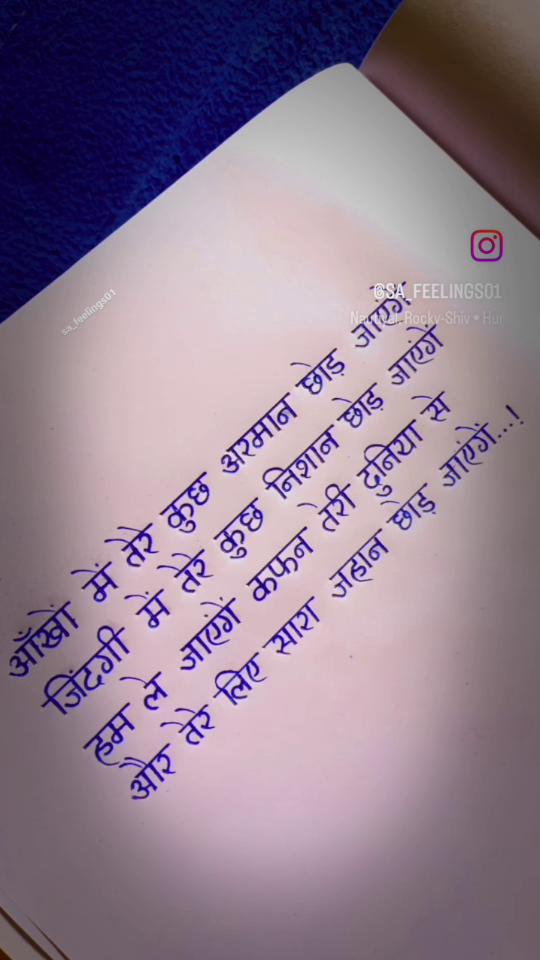 @SA_FEELINGS01
Rocky-Shiv • Hur
sa_feelings01
आँखों में तेरे कुछ अरमान छोड़ जाएंगें
जिंदगी में तेरे कुछ निशान छोड़ जाएंगें
हम ले जाएंगें कफन तेरी दुनिया से
और तेरे लिए सारा जहान छोड़ जाएंगें...!